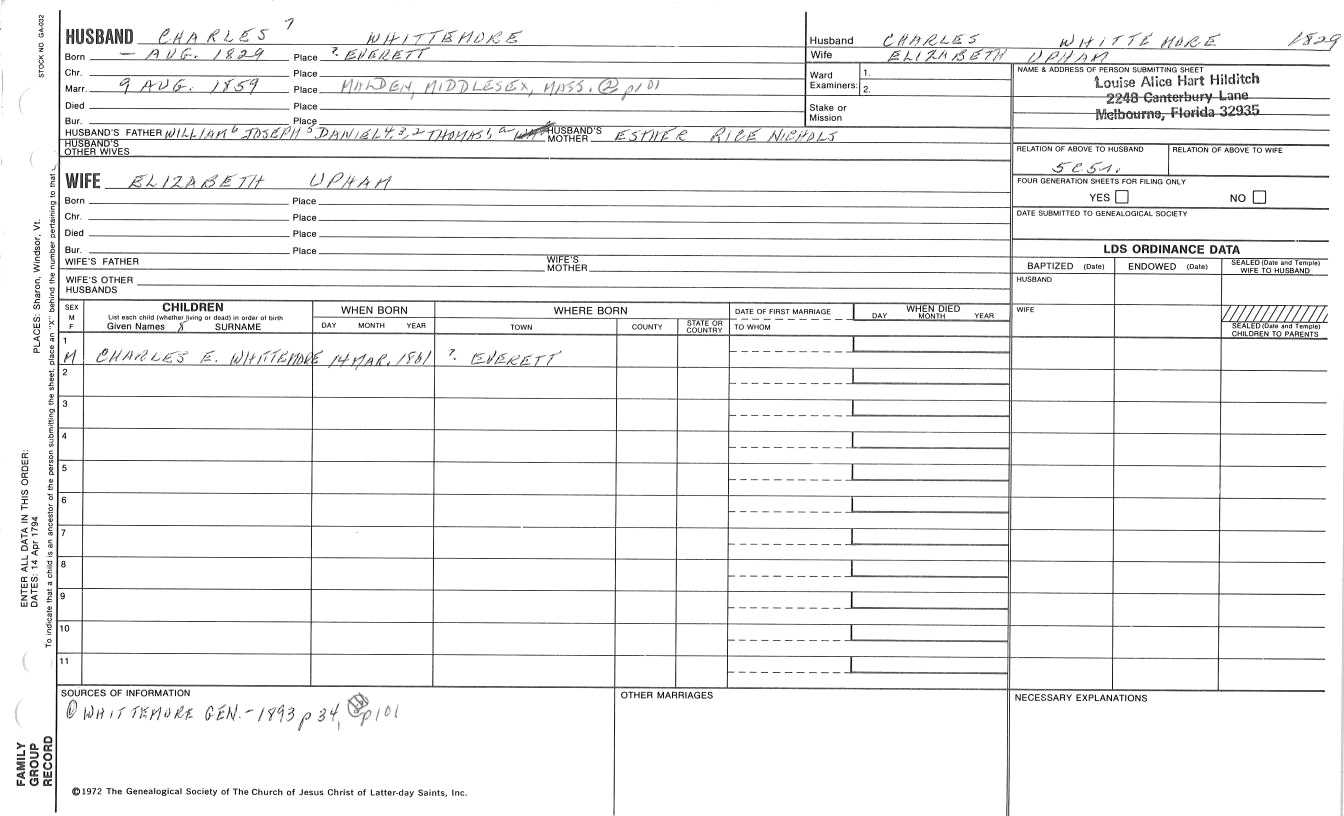 STOCK NO. GA-032
PLACES: Sharon, Windsor, Vt.
ENTER ALL DATA IN THIS ORDER:
DATES: 14 Apr 1794
To indicate that a child is an ancestor of the person submitting the sheet, place an "X" behind the number pertaining to that
FAMILY GROUP RECORD
HUSBAND CHARLES 7 WHITTEMORE
Born — AUG. 1829 Place ? EVERETT
Chr. Place
Marr. 9 AUG. 1859 Place MALDEN, MIDDLESEX, MASS. ② p101
Died Place
Bur. Place
HUSBAND'S FATHER WILLIAM 6 JOSEPH 5 DANIEL 4, 3, 2 THOMAS 1, a HUSBAND'S MOTHER ESTHER RICE NICHOLS
HUSBAND'S OTHER WIVES
WIFE ELIZABETH UPHAM
Born Place
Chr. Place
Died Place
Bur. Place
WIFE'S FATHER WIFE'S MOTHER
WIFE'S OTHER HUSBANDS
Husband CHARLES WHITTEMORE 1829
Wife ELIZABETH UPHAM
Ward Examiners: 1.
2.
Stake or Mission
NAME & ADDRESS OF PERSON SUBMITTING SHEET
Louise Alice Hart Hilditch
2248 Canterbury Lane
Melbourne, Florida 32935
RELATION OF ABOVE TO HUSBAND RELATION OF ABOVE TO WIFE
5C5
FOUR GENERATION SHEETS FOR FILING ONLY
YES NO
DATE SUBMITTED TO GENEALOGICAL SOCIETY
LDS ORDINANCE DATA
BAPTIZED (Date) ENDOWED (Date) SEALED (Date and Temple) WIFE TO HUSBAND
HUSBAND
WIFE
SEALED (Date and Temple) CHILDREN TO PARENTS
SEX M F CHILDREN WHEN BORN WHERE BORN DATE OF FIRST MARRIAGE WHEN DIED
List each child (whether living or dead) in order of birth
Given Names 8 SURNAME DAY MONTH YEAR TOWN COUNTY STATE OR COUNTRY TO WHOM DAY MONTH YEAR
1
M CHARLES E. WHITTEMORE 14 MAR. 1861 ? EVERETT
2
3
4
5
6
7
8
9
10
11
SOURCES OF INFORMATION OTHER MARRIAGES NECESSARY EXPLANATIONS
① WHITTEMORE GEN. - 1893 p 34, p101
©1972 The Genealogical Society of The Church of Jesus Christ of Latter-day Saints, Inc.